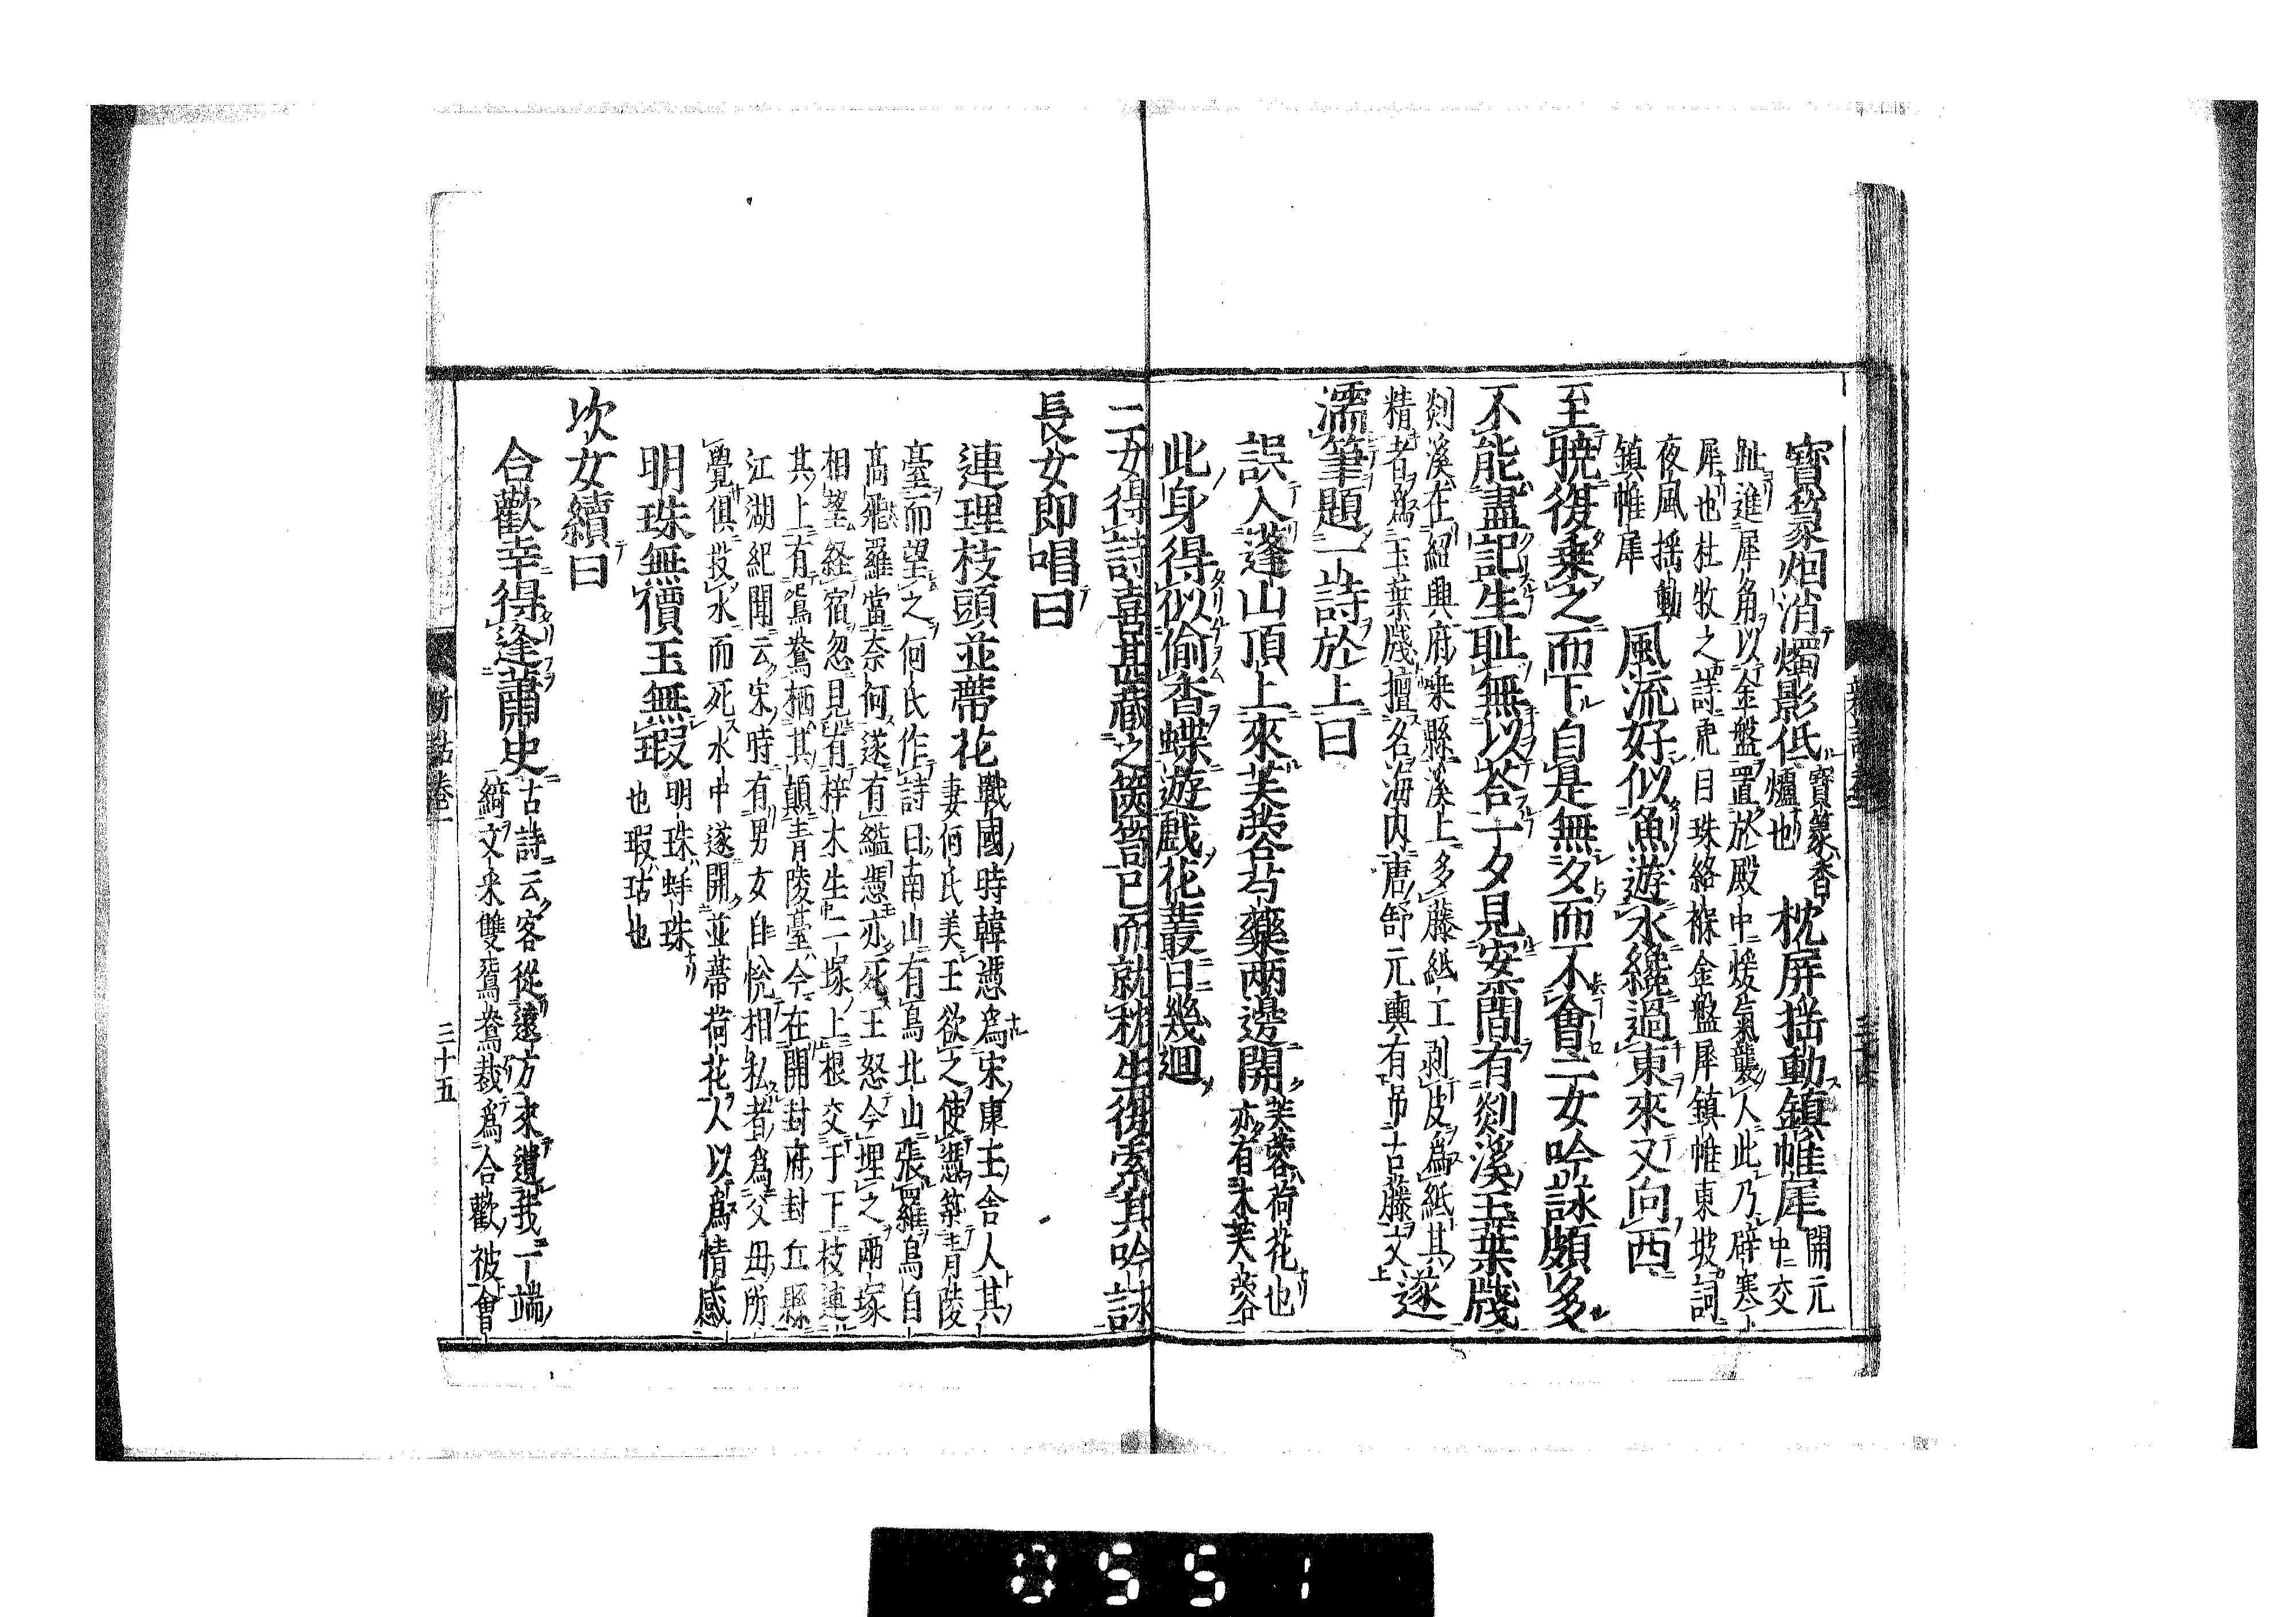 寶篆烟消燭影低
寶篆香
爐也
枕屏揺動鎮帷犀
開元
中交
趾進犀角以金盤置於殿中煖氣襲人此乃辟寒
犀也杜牧之詩虎目珠絡褓金盤犀鎮帷東坡詞
夜風揺動
鎮帷犀
風流好似魚遊水纔過東來又向西
至暁復乗之而下自是無夕而不會二女吟詠頗多
不能盡記生耻無以荅一夕見案間有剡溪玉葉牋
剡溪在紹興府嵊縣溪上多藤紙工剥皮為紙其
精者為玉葉牋擅名海内唐舒元輿有吊古藤文
遂
濡筆題一詩於上曰
誤入蓬山頂上來芙蓉芍藥兩邊開
芙蓉荷花也
亦有木芙蓉
此身得似偷香蝶遊戯花叢日幾迴
二女得詩喜甚藏之篋笥已而就枕生復索其吟詠
長女即唱曰
連理枝頭並蔕花
戰國時韓憑為宋康王舎人其
妻何氏美王欲之使憑築青陵
臺而望之何氏作詩曰南山有鳥北山張羅鳥自
髙飛羅當奈何遂有縊憑亦死王怒令埋之兩塚
相望経宿忽見有梓木生二塚上根交于下枝連
其上有鴛鴦栖其顛青陵臺今在開封府封丘縣
江湖紀聞云宋時有男女自恱相私者為父毋所
覺俱投水而死水中遂開並蔕荷花人以為情感
明珠無價玉無瑕
明珠蚌珠
也瑕玷也
次女續曰
合歡幸得逢蕭史
古詩云客從遠方來遺我一端
綺文采雙鴛鴦裁為合歡被會
新話巻一
三十五
0551